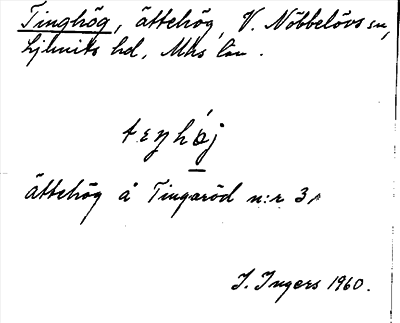 Tinghög, ättehög, V. Nöbbelövs sn,
Ljunits hd, Mhs län.
teŋhǿj
ättehög å Tingaröd n:r 31
I. Ingers 1960.